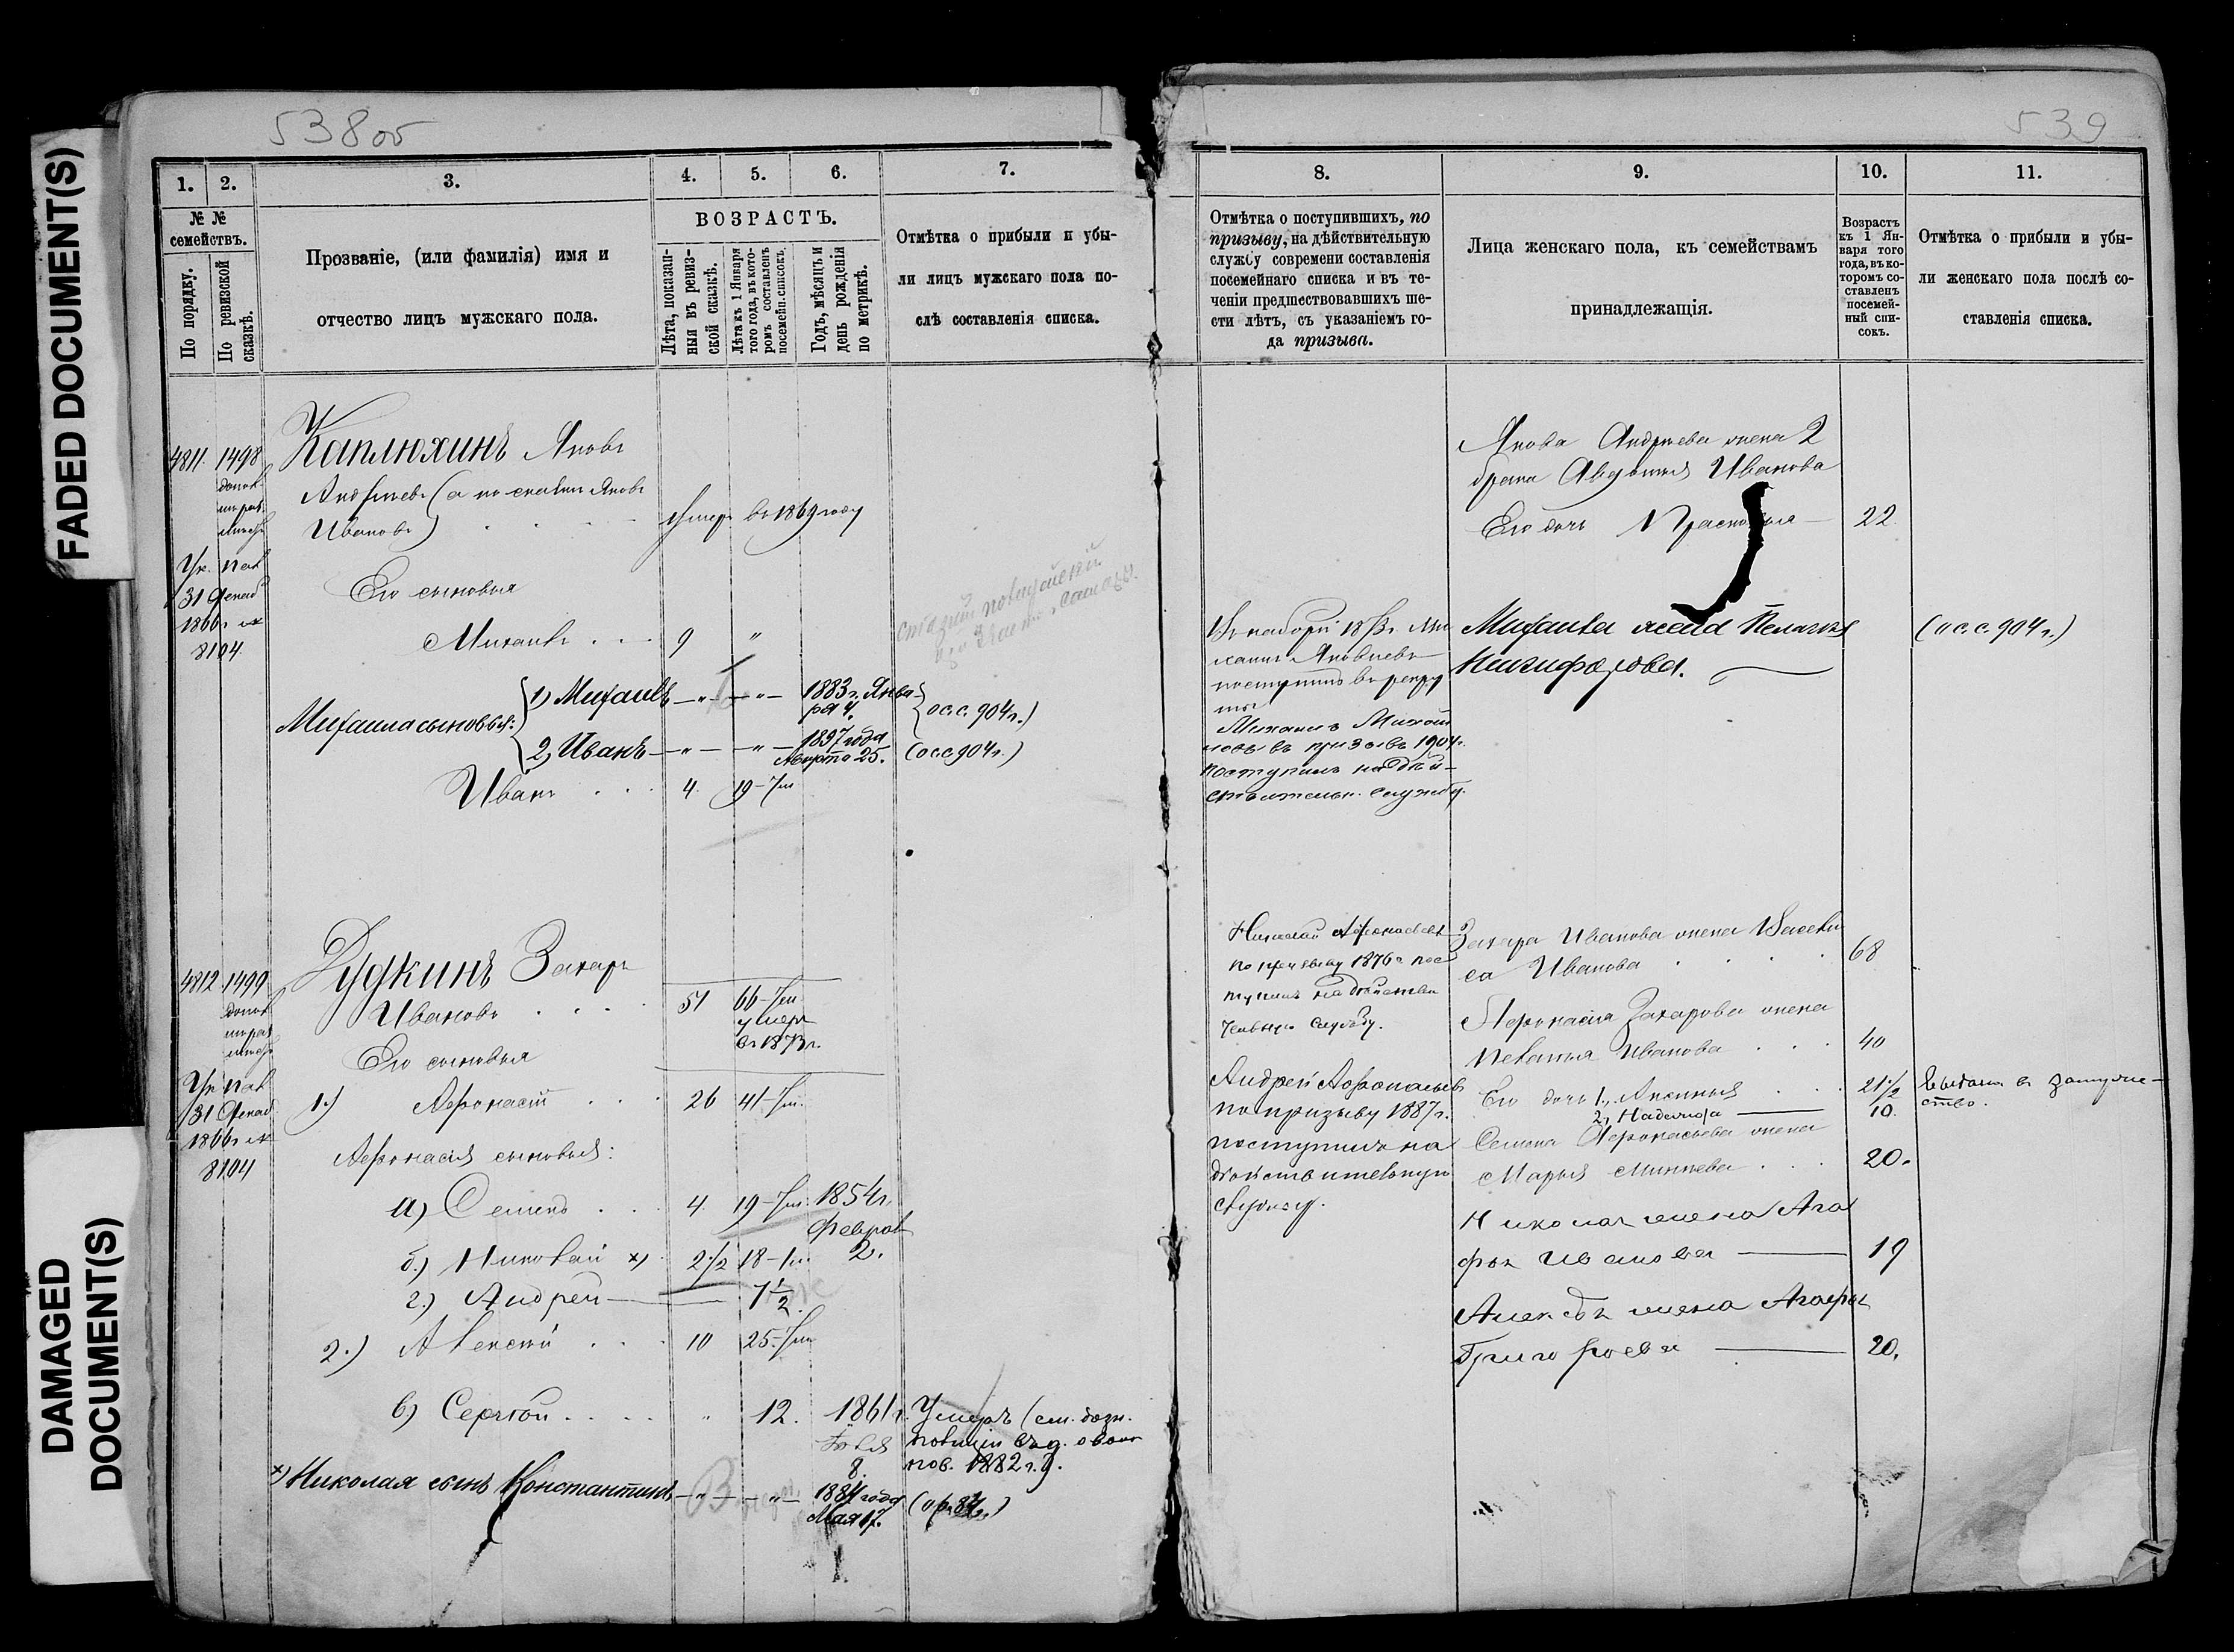 FADED DOCUMENT(S)
DAMAGED
DOCUMENT(S)
538об
1. 2. 3. 4. 5. 6. 7.
№ №
семействъ.
По порядку.
По ревизской
сказкѣ.
Прозваніе, (или фамилія) имя и
отчество лицъ мужскаго пола.
ВОЗРАСТЪ.
Лѣта, показан-
ныя въ ревиз-
ской сказкѣ.
Лѣта къ 1 Января
того года, въ кото-
ромъ составленъ
посемейн. списокъ.
Годъ, мѣсяцъ и
день рожденія
по метрикѣ.
Отмѣтка о прибыли и убы-
ли лицъ мужскаго пола по-
слѣ составленія списка.
4811. 1498 Каплюхинъ Яковъ
Андреевъ (а по сказки Яковъ
Ивановъ) умеръ въ 1869 году
Ук. Пал.
31
1866 г.
8104
Его сыновья
Михаилъ 9 "
Михаила сыновья:
1) Михаилъ — " — — " — 1883 г. Янва-
ря 4. (ос.с. 904 г.)
2) Иванъ — " — — " — 1897 года
Марта 25. (ос.с 904 г.)
Иванъ 4. 19-
4812 1499 Дудкинъ Захаръ
Ивановъ 51 66-
умеръ
въ 1873 г.
Его сыновья
Ук. Пал.
31
1866 г.
8104
1.) Афонасій 26 41-
Афонасія сыновья:
а) Семенъ 4. 19- 1854 г.
Феврал
б.) Николай х) 2 1/2 18- 2.
г.) Андрей — 7 1/2.
2.) Алексей 10 25-
в) Сергей " 12. 1861 г. Умеръ (см. дозн.
8. 1882 г.).
х) Николая сынъ Константинъ — " — — " — 1884 года
Мая 17.
539
8. 9. 10. 11.
Отмѣтка о поступившихъ, по
призыву, на дѣйствительную
службу современи составленія
посемейнаго списка и въ те-
ченіи предшествовавшихъ ше-
сти лѣтъ, съ указаніемъ го-
да призыва.
Лица женскаго пола, къ семействамъ
принадлежащія.
Возрастъ
къ 1 Ян-
варя того
года, въ ко-
торомъ со-
ставленъ
посемей-
ный спи-
сокъ.
Отмѣтка о прибыли и убы-
ли женскаго пола послѣ со-
ставленія списка.
Якова Андреева жена 2
брака Авдотья Иванова
Его дочь Прасковья — 22
Михаила жена Пелагея (ос.с. 904 г.)
Никифорова.
Въ наборъ Ми-
хаилъ Яковлевъ
поступилъ въ рекру
ты
Михаилъ Михай
ловъ въ призывъ 1904 г.
поступилъ на дѣй-
ствительн. службу.
Николай Афонасьевъ
по призыву 1876 г. пос
тупилъ на действи
тельную службу.
Андрей Афонасьевъ
по призыву 1887 г.
поступилъ на
действительную
службу.
Захара Иванова жена Васели
са Иванова 68
Афонасія Захарова жена
Пелагья Иванова 40
Его дочь 1, Аксинья 21 1/2 выдана в замуже-
ство.
2, Надежда — 10.
Семена Афонасьева жена
Марья 20.
Николая жена Ага
фья Иванова — 19
Алексея жена Агафья
Григорьева — 20.